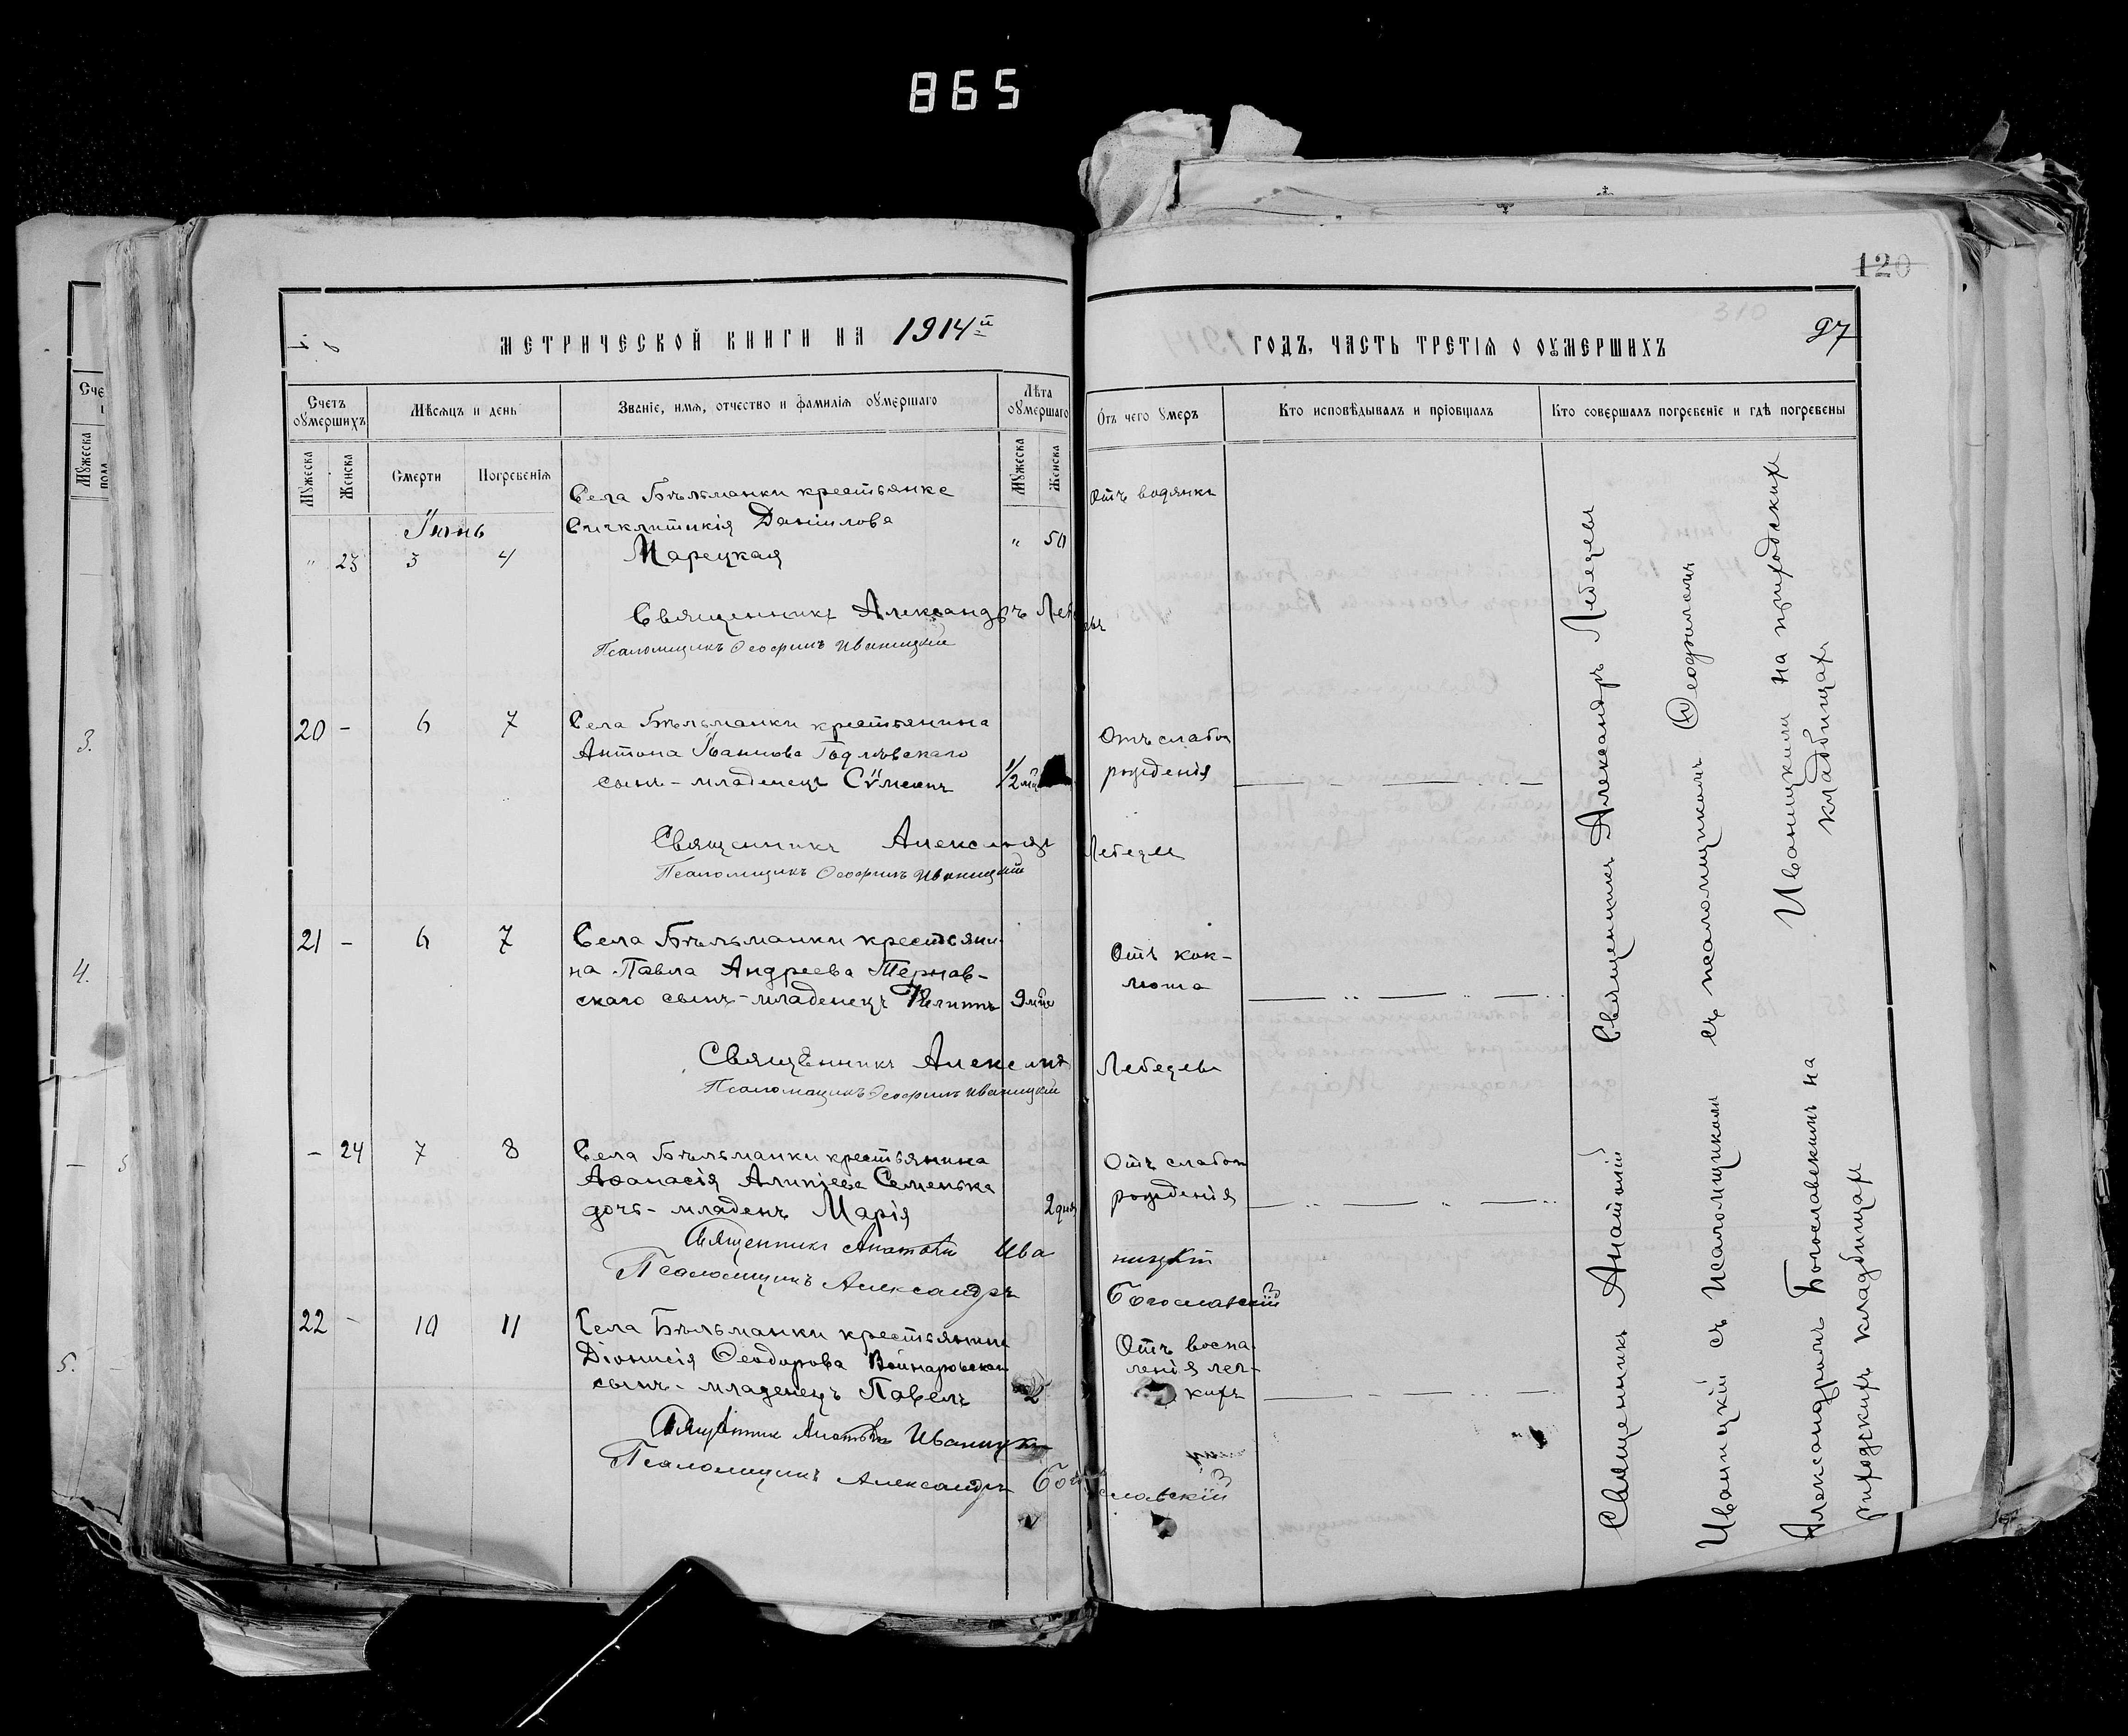 865
120
310
97
МЕТРИЧЕСКОЙ КНИГИ НА 1914й
ГОДЪ, ЧАСТЬ ТРЕТІЯ О ОУМЕРШИХЪ
Счетъ оумершихъ
Мѣсяцъ и день
Званіе, имя, отчество и фамилія оумершаго
Лѣта оумершаго
Отъ чего умеръ
Кто исповѣдывалъ и пріобщалъ
Кто совершалъ погребеніе и гдѣ погребены
Мужеска
Женска
Смерти
Погребенія
Мужеска
Женска
Іюнь
" 23 3 4
Села Бѣльманки крестьянке
Синклитикія Даніилова
Марецкая
" 50
Отъ водянки
Священникъ Александръ Лебедевъ
Псаломщикъ Ѳеофилъ Иваницкій
20 - 6 7
Села Бѣльманки крестьянина
Антона Іоаннова
сынъ - младенецъ Сѵмеонъ
1/2 мца
Отъ слабо
рожденія
Священникъ Александръ Лебедевъ
Псаломщикъ Ѳеофилъ Иваницкій
21 - 6 7
Села Бѣльманки крестьяни-
на Павла Андреева Тернов-
скаго сынъ - младенецъ Филиппъ
9 мце
Отъ кок-
люша
Священникъ Лебедевъ
Псаломщикъ Ѳеофилъ Иваницкій
- 24 7 8
Села Бѣльманки крестьянина
Аѳанасія Алипіева Семенька
дочь - младенъ Марія
2 дня
Отъ слабо
рожденія
Священникъ Анатолій Иваницкій
Псаломщикъ Александръ Богославскій
22 - 10 11
Села Бѣльманки крестьянина
Діонисія Ѳеодорова Войнаровскаго
сынъ - младенецъ Павелъ
2
Отъ воспа-
ленія лег-
кихъ
Священникъ Анатолій Иваницкій
Псаломщикъ Александръ Богославскій
Священникъ Александръ Лебедевъ
съ псаломщикомъ Ѳеофиломъ
Иваницкимъ на приходскихъ
кладбищахъ
Священникъ Анатолій
Иваницкій съ псаломщикомъ
Александромъ Богославскимъ на
приходскихъ кладбищахъ
3.
4.
5.